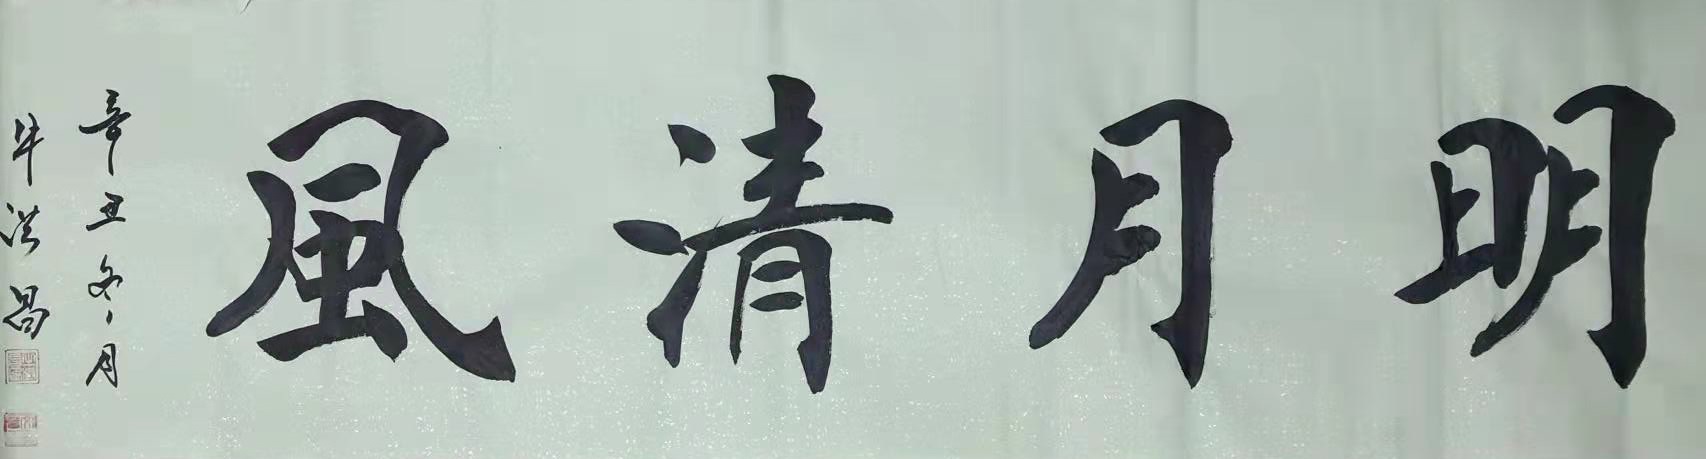 明月清風
辛丑冬月
牛洪昌